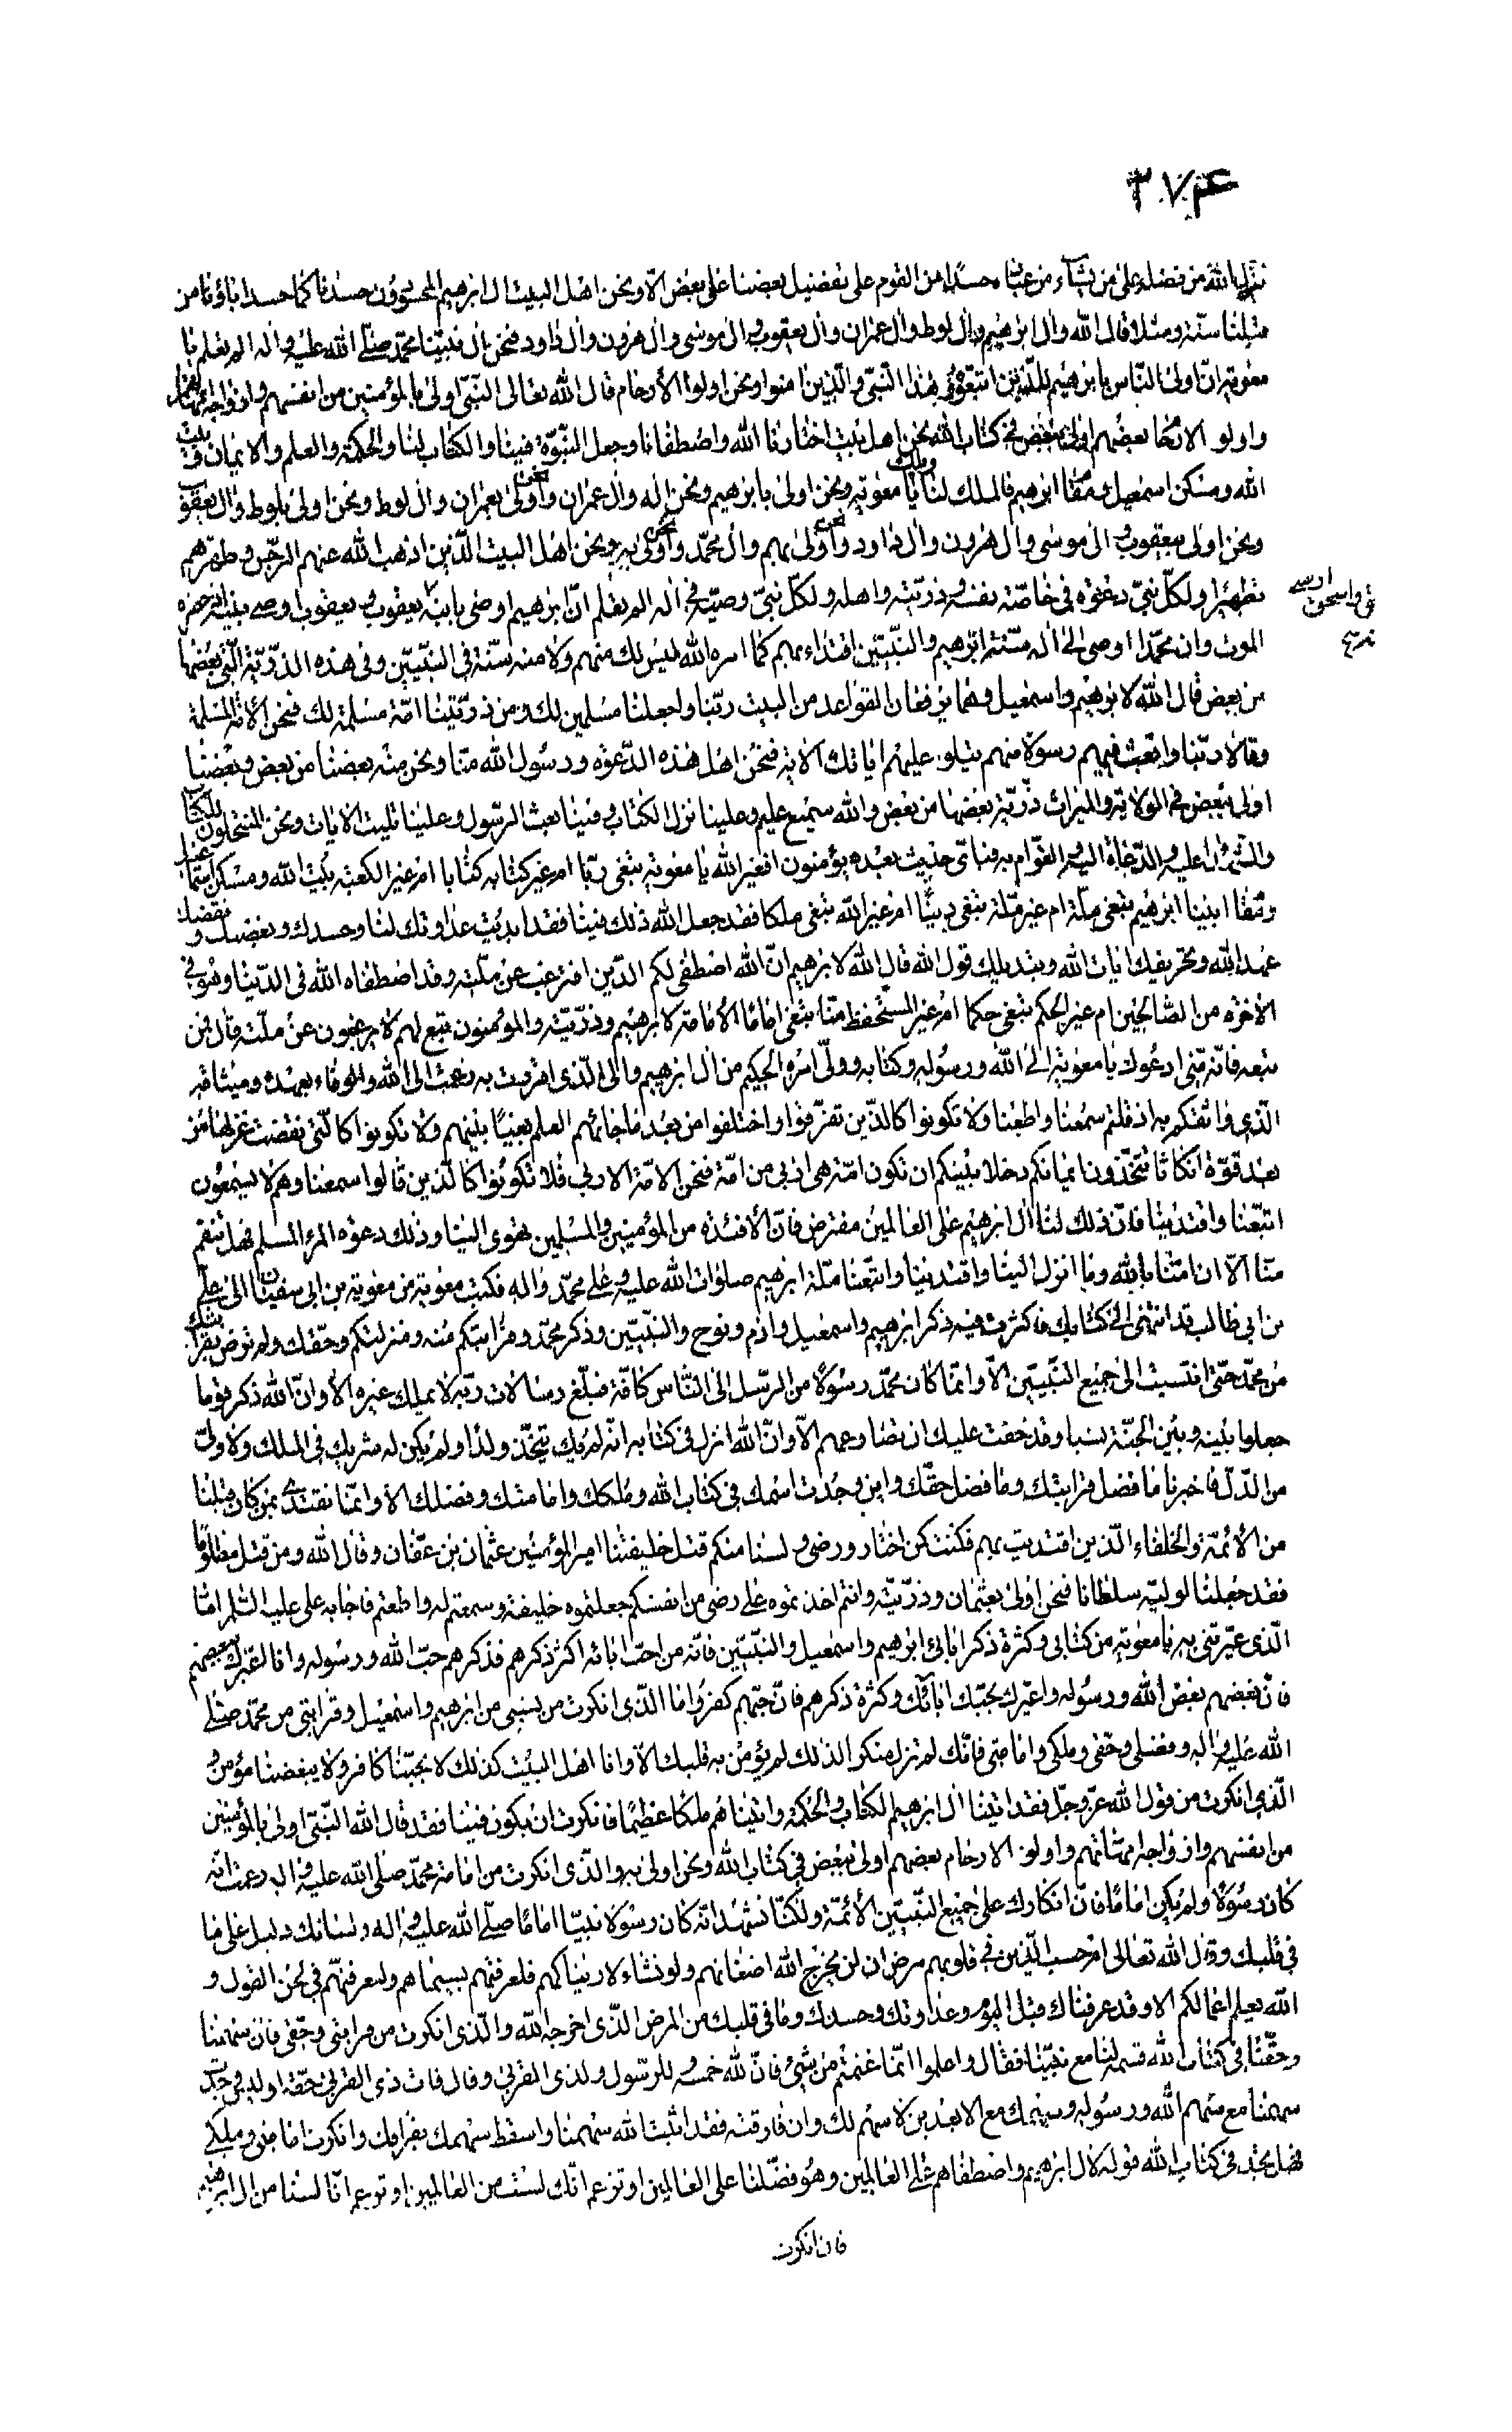 ۳۷۴
ينزل الله من فضله على من يشاء من عباده حسدا من القوم على تفضيل بعضنا على بعض الا ونحن اهل البيت ال ابرهيم المحسودون حسدنا كما حسد اباؤنا من
قبلنا سنة ومثلا وقال الله وال ابرهيم وال لوط وال عمران وال يعقوب وال موسى وال هرون وال داود فنحن ال نبينا محمد صلى الله عليه واله الم تعلم يا
معوية ان اولى الناس بابرهيم للذين اتبعوه وهذا النبي والذين امنوا ونحن اولوا الأرحام قال الله تعالى النبي اولى بالمؤمنين من انفسهم وازواجه امهاتهم
واولو الارحام بعضهم اولى ببعض في كتاب الله نحن اهل بيت اختارنا الله واصطفانا وجعل النبوة فينا والكتاب لنا والحكمة والعلم والايمان وبيت
الله ومسكن اسمعيل ومقام ابرهيم فالملك لنا ويلك يا معوية ونحن اولى بابرهيم ونحن اله وال عمران واولى بعمران وال لوط ونحن اولى بلوط وال يعقوب
ونحن اولى بيعقوب وال موسى وال هرون وال داود واولى بهم وال محمد واولى به ونحن اهل البيت الذين اذهب الله عنهم الرجس وطهرهم
تطهيرا ولكل نبي دعوة في خاصة نفسه وذريته واهله ولكل نبي وصية في اله الم تعلم ان ابرهيم اوصى بابنه يعقوب ويعقوب اوصى بنيه اذ حضره
الموت وان محمدا اوصى الى اله سنة ابرهيم والنبيين اقتداء بهم كما امره الله ليس لك منهم ولا منه سنة في النبيين وفي هذه الذرية التي بعضها
من بعض قال الله لابرهيم واسمعيل وهما يرفعان القواعد من البيت ربنا واجعلنا مسلمين لك ومن ذريتنا امة مسلمة لك فنحن الأمة المسلمة
وقالا ربنا وابعث فيهم رسولا منهم يتلو عليهم اياتك الاية فنحن اهل هذه الدعوة ورسول الله منا ونحن منه بعضنا من بعض وبعضنا
اولى ببعض في الولاية والميراث ذرية بعضها من بعض والله سميع عليم وعلينا نزل الكتاب وفينا بعث الرسول وعلينا تليت الايات ونحن المنتحلون للكتاب
والشهداء عليه والدعاة اليه والقوام به فباى حديث بعده يؤمنون افغير الله يا معوية تبغى ربا ام غير كتابه كتابا ام غير الكعبة بيت الله ومسكن اسمعيل
ومقام ابينا ابرهيم تبغى قبلة ام غير ملة تبغى دينا ام غير الله تبغى ملكا فقد جعل الله ذلك فينا فقد ابديت عداوتك لنا وحسدك وبغضك ونقضك
عهد الله وتحريفك ايات الله وتبديلك قول الله قال الله لابرهيم ان الله اصطفى لكم الدين افترغب عن ملته وقد اصطفاه الله في الدنيا وهو في
الاخرة من الصالحين ام غير الحكم تبغى حكما ام غير المستحفظ منا تبغى اماما الأمامة لابرهيم وذريته والمؤمنون تبع لهم لا يرغبون عن ملته قال فمن
تبعه فانه مني ادعوك يا معوية الى الله ورسوله وكتابه وولى امره الحكيم من ال ابرهيم والى الذى اقررت به زعمت الى الله والوفاء بعهده وميثاقه
الذى واثقكم به اذ قلتم سمعنا واطعنا ولا تكونوا كالذين تفرقوا واختلفوا من بعد ما جائهم العلم بغيا بينهم ولا تكونوا كالتى نقضت غزلها من
بعد قوة انكاثا تتخذون ايمانكم دخلا بينكم ان تكون امة هى اربى من امة فنحن الامة الاربى فلا تكونوا كالذين قالوا سمعنا وهم لا يسمعون
اتبعنا واقتد بنا فان ذلك لنا ال ابرهيم على العالمين مفترض فان الأفئدة من المؤمنين والمسلمين تهوى الينا وذلك دعوة المرء المسلم فهل تنقم
منا الا ان امنا بالله وما انزل الينا واقتدينا واتبعنا ملة ابرهيم صلوات الله عليه وعلى محمد واله فكتب معوية من معوية بن ابى سفيان الى على
بن ابى طالب قد انتهى الى كتابك فاكثرت فيه ذكر ابرهيم واسمعيل وادم ونوح والنبيين وذكر محمد وقرابتكم منه ومنزلتكم وحقك ولم ترض بقرابتك
من محمد حتى انتسبت الى جميع النبيين الا وانما كان محمد رسولا من الرسل الى الناس كافة فبلغ رسالات ربه لا يملك غيره الا وان الله ذكر قوما
جعلوا بينه وبين الجنة نسبا وقد خفت عليك ان تضارعهم الا وان الله انزل في كتابه انه لم يك يتخذ ولدا ولم يكن له شريك في الملك ولا ولى
من الذل فاخبرنا ما فضل قرابتك وما فضل حقك واين وجدت اسمك في كتاب الله وملكك وامامتك وفضلك الا وانما نقتدى بمن كان قبلنا
من الأئمة والخلفاء الذين اقتديت بهم فكنت كمن اختار ورضى ولسنا منكم قتل خليفتنا امير المؤمنين عثمان بن عفان وقال الله ومن قتل مظلوما
فقد جعلنا لوليه سلطانا فنحن اولى بعثمان وذريته وانتم اخذتموه على رضى من انفسكم جعلتموه خليفة وسمعتم له واطعتم فاجابه على عليه السلم اما
الذى عيرتنى به يا معوية من كتابى وكثرة ذكر ابائى ابرهيم واسمعيل والنبيين فانه من احب ابائه اكثر ذكرهم فذكرهم حب الله ورسوله وانا اعيرك ببغضهم
فان بغضهم بغض الله ورسوله واعيرك بحبك ابائك وكثرة ذكرهم فان حبهم كفر واما الذى انكرت من نسبى من ابرهيم واسمعيل وقرابتى من محمد صلى
الله عليه واله وفضلى وحقى وملكى وامامتى فانك لم تزل منكرا لذلك لم يؤمن به قلبك الا وانا اهل البيت كذلك لا يحبنا كافر ولا يبغضنا مؤمن
الذى انكرت من قول الله عز وجل فقد اتينا ال ابرهيم الكتاب والحكمة واتيناهم ملكا عظيما فانكرت ان يكون فينا فقد قال الله النبى اولى بالمؤمنين
من انفسهم وازواجه امهاتهم واولو الارحام بعضهم اولى ببعض في كتاب الله ونحن اولى به والذى انكرت من امامة محمد صلى الله عليه واله زعمت انه
كان رسولا ولم يكن اماما فان انكارك على جميع النبيين الأئمة ولكنا نشهد انه كان رسولا نبيا اماما صلى الله عليه واله ولسانك دليل على ما
في قلبك وقال الله تعالى ام حسب الذين في قلوبهم مرض ان لن يخرج الله اضغانهم ولو نشاء لاريناكهم فلعرفتهم بسيماهم ولتعرفنهم في لحن القول و
الله يعلم اعمالكم الا وقد عرفناك قبل اليوم وعداوتك وحسدك وما في قلبك من المرض الذى اخرجه الله والذى انكرت من قرابتى وحقى فان سهمنا
وحقنا في كتاب الله قسمه لنا مع نبينا فقال واعلموا انما غنمتم من شئ فان لله خمسه وللرسول ولذى القربى وقال فات ذى القربى حقه اوليس وجدت
سهمنا مع سهم الله ورسوله وسهمك مع الابعدين لا سهم لك وان فارقته فقد اثبت الله سهمنا واسقط سهمك بفراقك وانكرت امامتى وملكى
فهل تجد في كتاب الله قوله لال ابرهيم واصطفاهم على العالمين وهو فضلنا على العالمين او تزعم انك لست من العالمين او تزعم انا لسنا من ال ابرهيم
فان انكرت